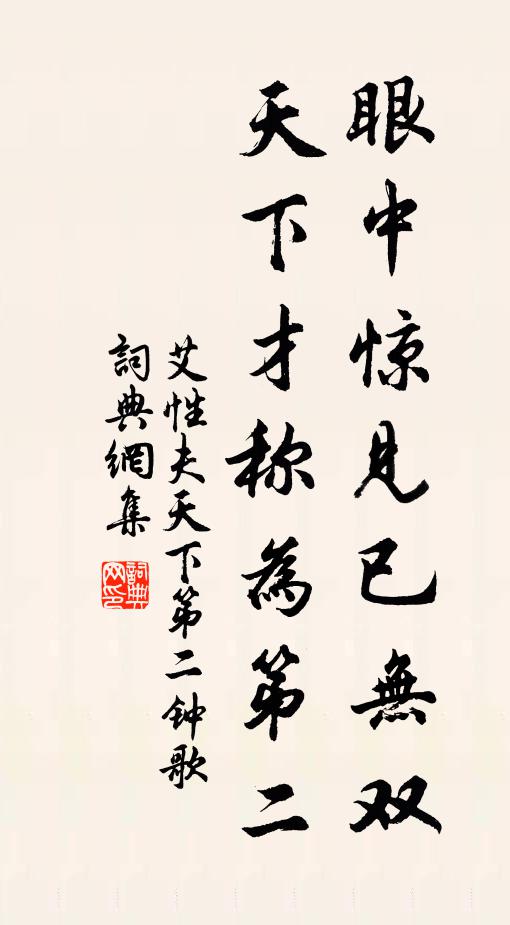 眼中惊见已無双
天下才称為第二
艾性夫天下第二钟歌
詞典網集
詞典网印